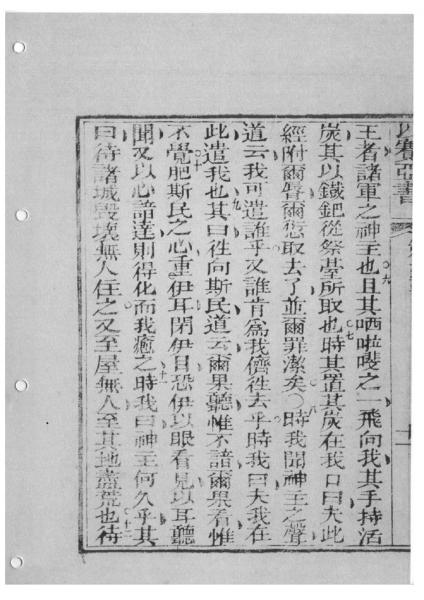 以賽亞書
王者諸軍之神王也且其哂啦㗭之一飛向我其手持活
炭其以鐵鈀從祭臺所取也時其置其炭在我口曰夫此
經附爾唇爾愆取去了並爾罪潔矣○時我聞神主之聲
道云我可遣誰乎又誰肯爲我儕徃去乎時我曰夫我在
此遣我也其曰徃向斯民道云爾果聽惟不諳爾果看惟
不覺肥斯民之心重伊耳閉伊目恐伊以眼看見以耳聽
聞及以心諳達則得化而我癒之時我曰神主何久乎其
曰待諸城毀壞無人住之又至屋無人至其地盡荒也待